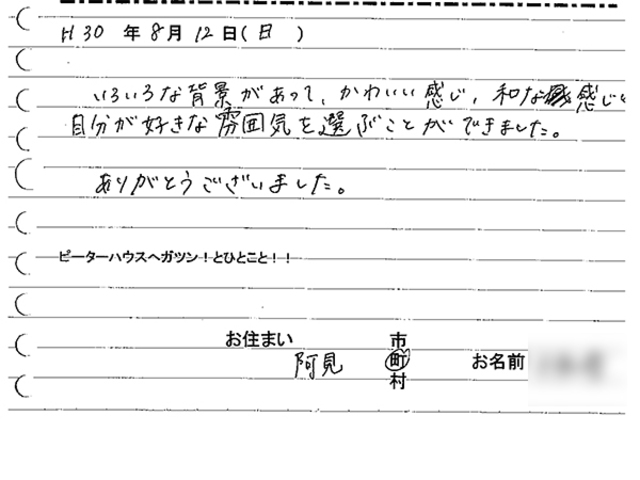 H 30 年 8月 12日(日 )
いろいろな背景があって、かわいい感じ、和な感じと
自分が好きな雰囲気を選ぶことができました。
ありがとうございました。
ピーターハウスへガツン!とひとこと!!
お住まい 阿見 市 町 村 お名前